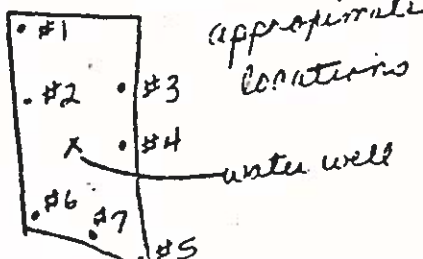 #1
approximate
locations
#2
#3
#4
X
water well
#6
#7
#5